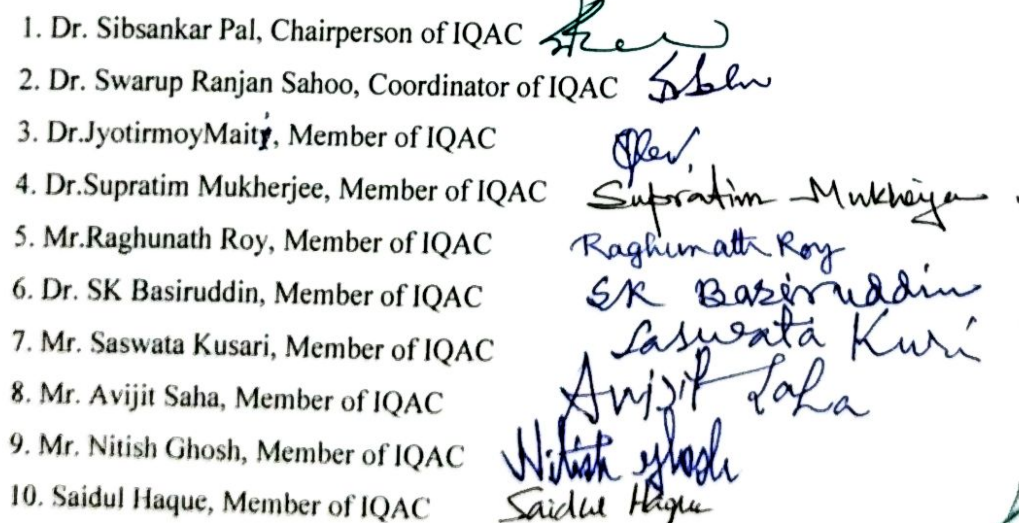 1. Dr. Sibsankar Pal, Chairperson of IQAC
2. Dr. Swarup Ranjan Sahoo, Coordinator of IQAC
3. Dr.JyotirmoyMaity, Member of IQAC
4. Dr.Supratim Mukherjee, Member of IQAC Supratim Mukherjee
5. Mr.Raghunath Roy, Member of IQAC Raghunath Roy
6. Dr. SK Basiruddin, Member of IQAC SK Basiruddin
7. Mr. Saswata Kusari, Member of IQAC Saswata
8. Mr. Avijit Saha, Member of IQAC Avijit Saha
9. Mr. Nitish Ghosh, Member of IQAC Nitish Ghosh
10. Saidul Haque, Member of IQAC Saidul Haque